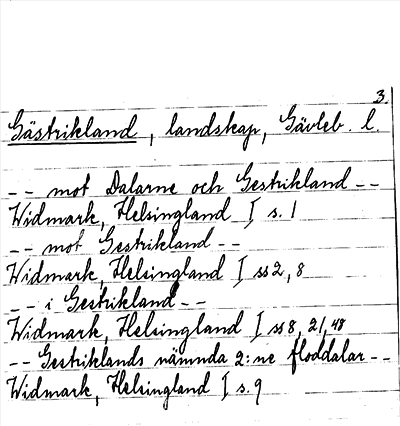 3.
Gästrikland, landskap, Gävleb. l.
-- mot Dalarne och Gestrikland --
Widmark, Helsingland I s. 1
-- mot Gestrikland --
Widmark, Helsingland I ss 2, 8
-- i Gestrikland --
Widmark, Helsingland I ss 8, 21, 48
-- Gestriklands nämnda 2:ne floddalar --
Widmark, Helsingland I s. 9